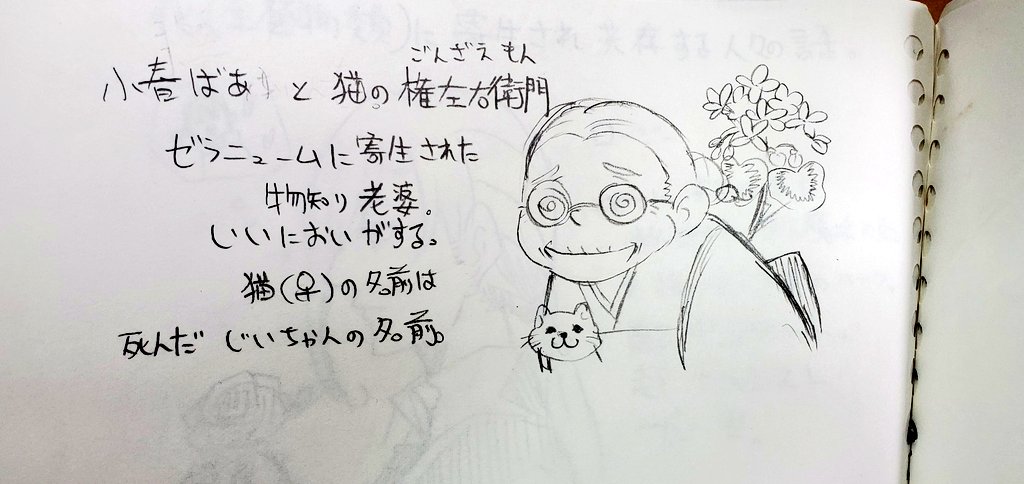 ごんざえもん
小春ばあと猫の権左右衛門
ゼラニュームに寄生された
物知り老婆。
いいにおいがする。
猫(♀)の名前は
死んだじいちゃんの名前。